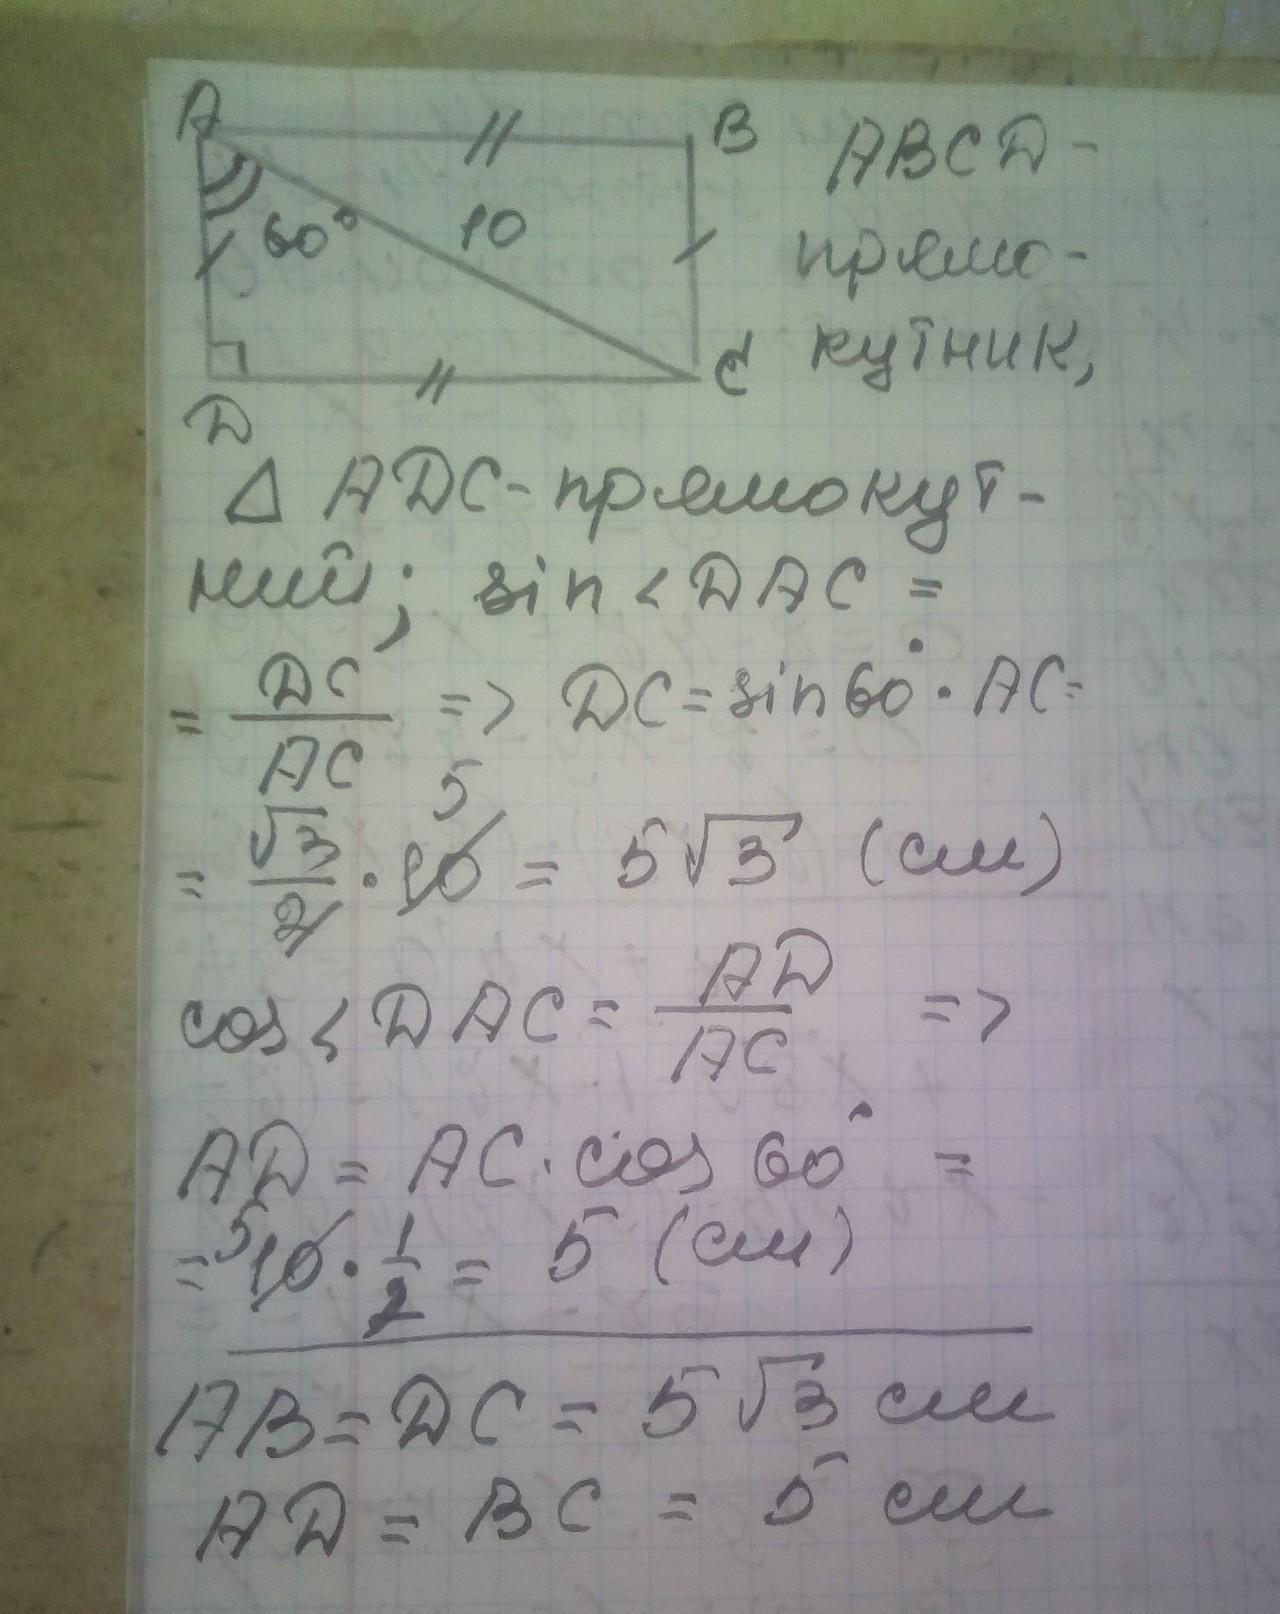 A
B
ABCD-
60°
10
прямо-
кутник,
C
D
△ ADC-прямокут-
ний; sin<DAC =
= DC/AC => DC=sin60°·AC=
= √3/2 · 10 5 = 5√3 (см)
cos<DAC = AD/AC =>
AD = AC·cos 60° =
= 5 10 · 1/2 = 5 (см)
AB = DC = 5√3 см
AD = BC = 5 см